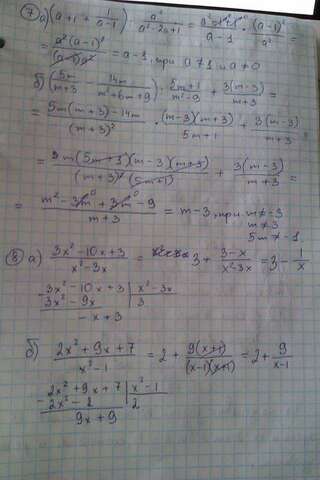 ⑦ а) (a+1 + 1/(a-1)) : a²/(a²-2a+1) = (a²-1+1)/(a-1) · (a-1)²/a² =
= a²(a-1)²/((a-1)a²) = a-1, при a≠1 и a≠0
б) (5m/(m+3) - 14m/(m²+6m+9)) : (5m+1)/(m²-9) + 3(m-3)/(m+3) =
= (5m(m+3)-14m)/(m+3)² · (m-3)(m+3)/(5m+1) + 3(m-3)/(m+3) =
= m(5m+1)(m-3)(m+3)/((m+3)²(5m+1)) + 3(m-3)/(m+3) =
= (m²-3m+3m-9)/(m+3) = m-3, при m≠-3
m≠3
5m≠-1
⑧ а) (3x²-10x+3)/(x²-3x) = 3 + (3-x)/(x²-3x) = 3 - 1/x
- 3x²-10x+3 | x²-3x
3x²-9x | 3
-x+3
б) (2x²+9x+7)/(x²-1) = 2 + 9(x+1)/((x-1)(x+1)) = 2 + 9/(x-1)
- 2x²+9x+7 | x²-1
2x²-2 | 2
9x+9